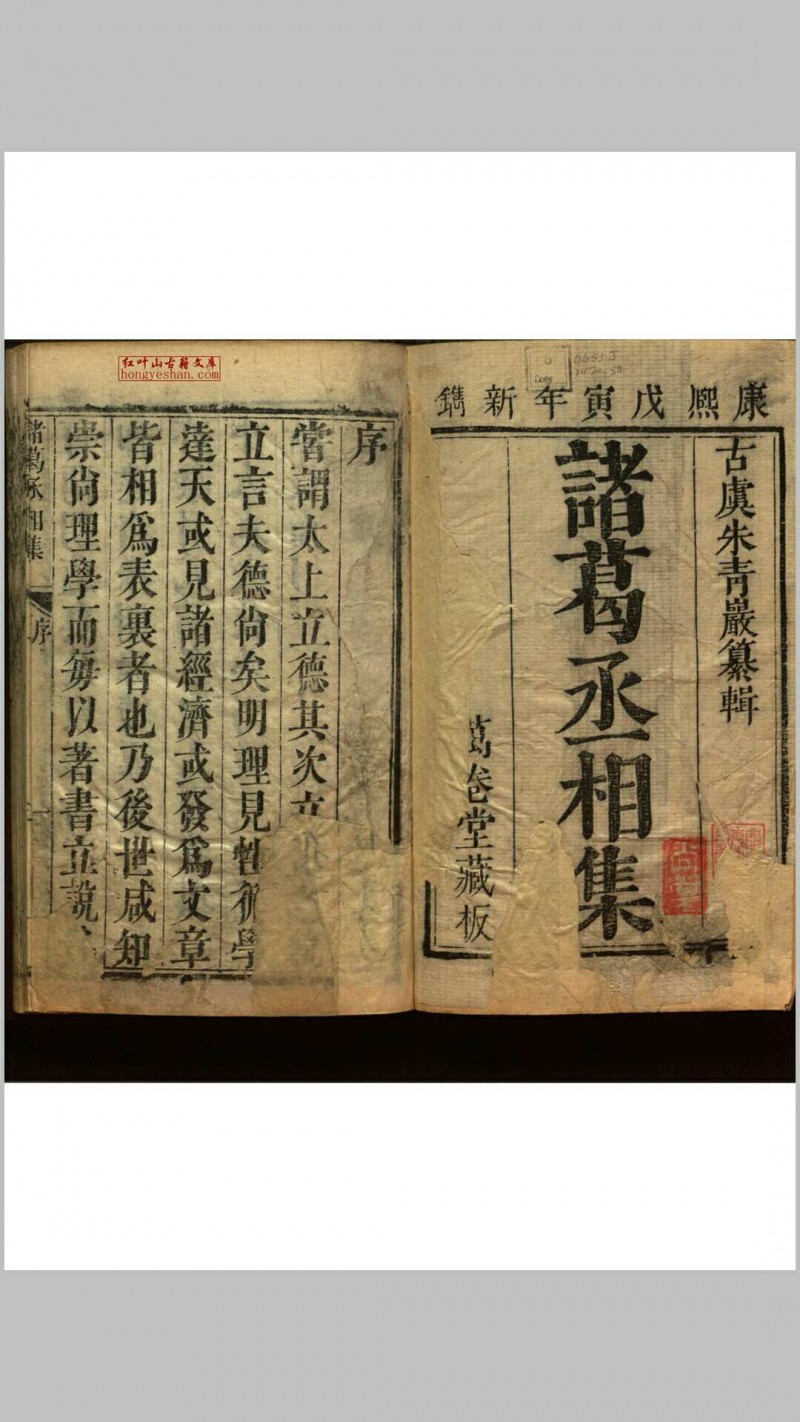 康熙戊寅年新鐫
古虞朱青巖纂輯
諸葛丞相集
萬卷堂藏板
序
嘗謂太上立德其次立
立言夫德尚矣明理見性彻學
達天或見諸經濟或發爲文章
皆相爲表裏者也乃後世咸知
崇尚理學而每以著書立說、
諸葛丞相集
序
一
红叶山古籍文库
hongyeshan.com
copy